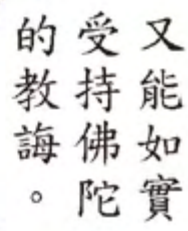 又能如實
受持佛陀
的教誨。